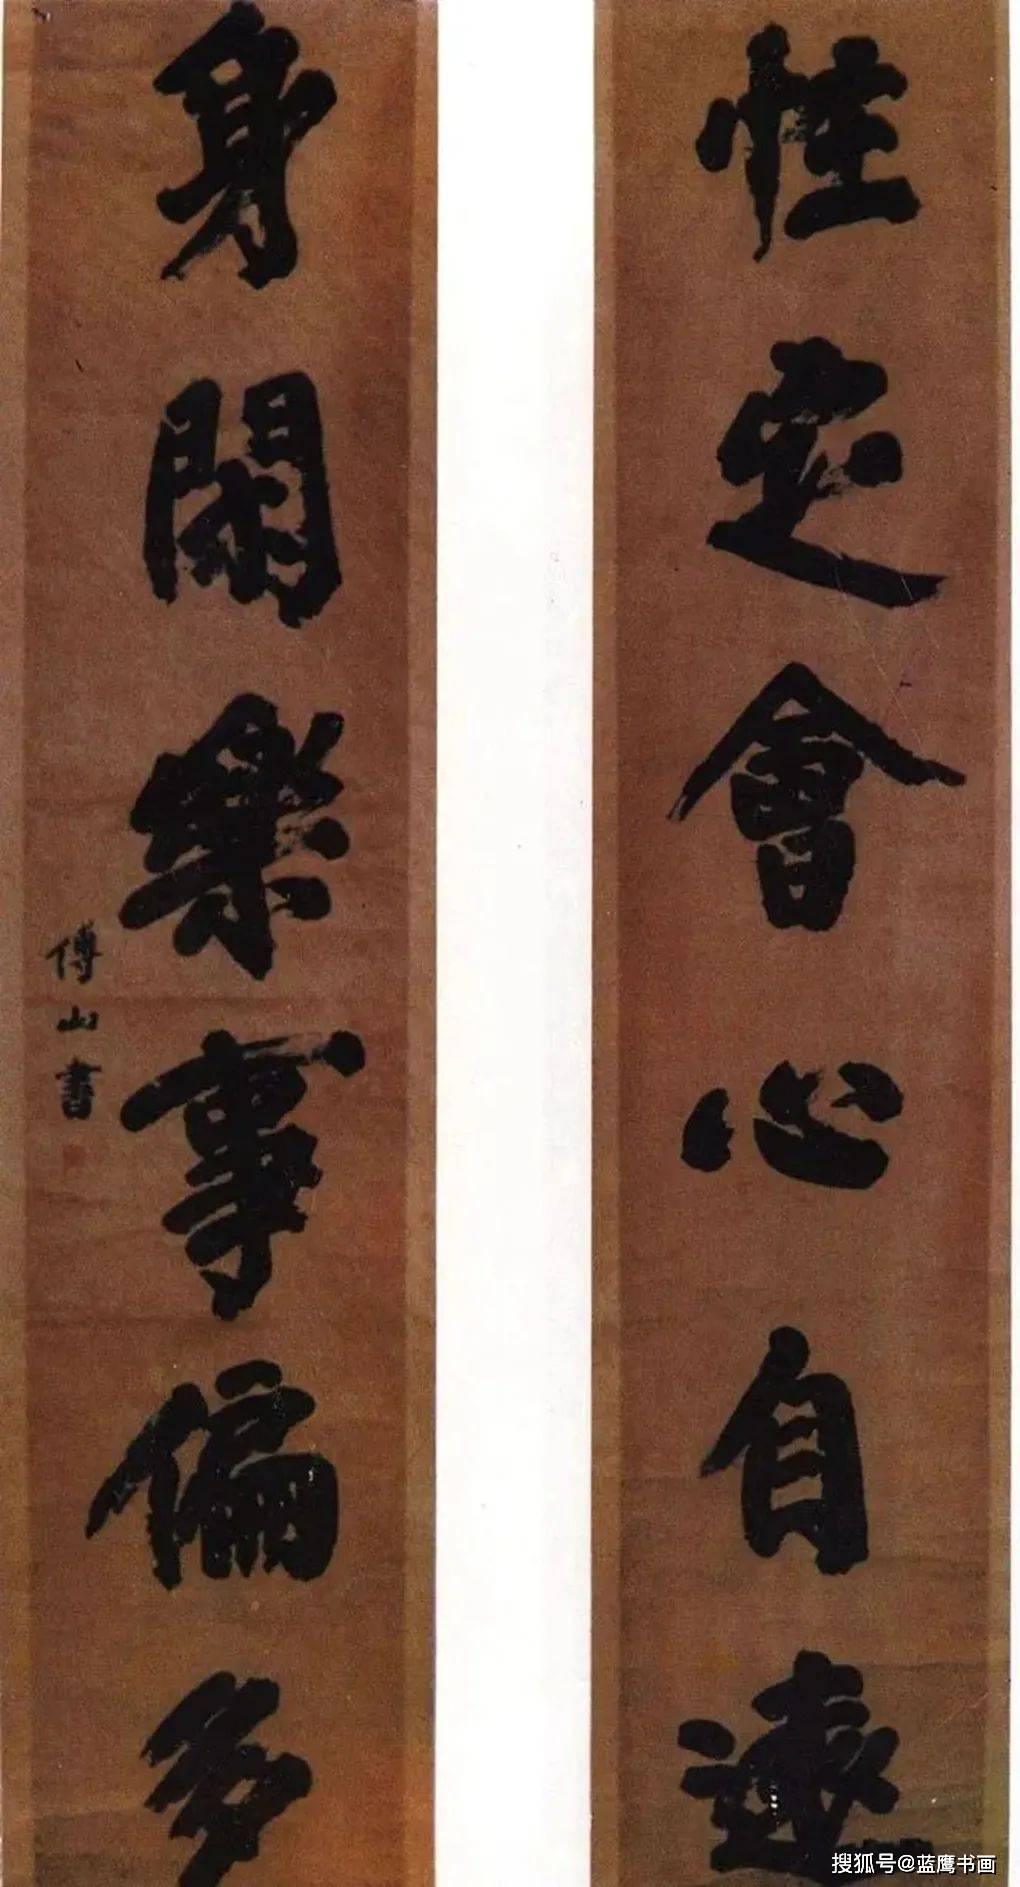 性定會心自遠
身閑樂事偏多
傅山書
搜狐号@蓝鹰书画